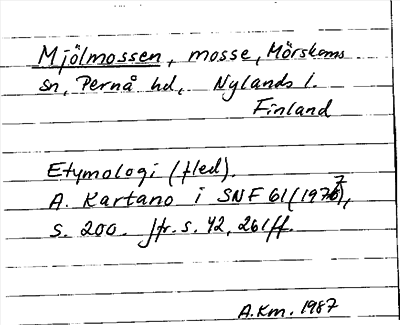 Mjölmossen, mosse, Mörskoms
sn, Pernå hd, Nylands l.
Finland
Etymologi (fled).
A. Kartano i SNF 61 (1977),
s. 200. Jfr. s. 42, 261 ff.
A.Km. 1987